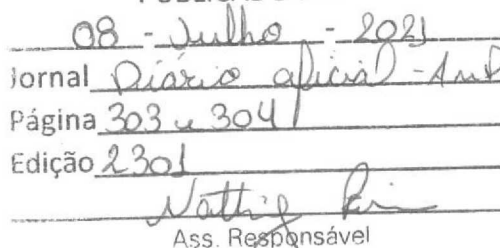 08 - Julho - 2021
Jornal Diário oficial - AmP
Página 303 e 304
Edição 2301
Ass. Responsável